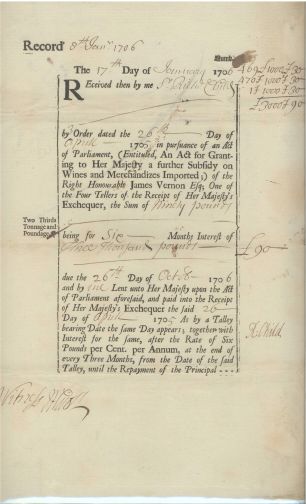 Record 8th Jan. 1706
Numb.
The 17th Day of January 1706
469 £1000 £30
470 £1000 £30
£1000 £30
£3000 £90
Received then by me Sr
by Order dated the 26th Day of
April 1705 in pursuance of an Act
of Parliament, (Entituled, An Act for Grant-
ing to Her Majesty a further Subsidy on
Wines and Merchandizes Imported;) of the
Right Honourable James Vernon Esq; One
of the Four Tellers of the Receipt of Her Majesty's
Exchequer, the Sum of Ninety pounds
Two Thirds
Tonnage and
Poundage.
being for Six Months Interest of
Three Thousand pounds
£90
due the 26th Day of Octobr 1706
and by me Lent unto Her Majesty upon the Act
of Parliament aforesaid, and paid into the Receipt
of Her Majesty's Exchequer the said 26
Day of April 1705 As by a Talley
bearing Date the same Day appears; together with
Interest for the same, after the Rate of Six
Pounds per Cent. per Annum, at the end of
every Three Months, from the Date of the said
Talley, until the Repayment of the Principal
R Child
Witness